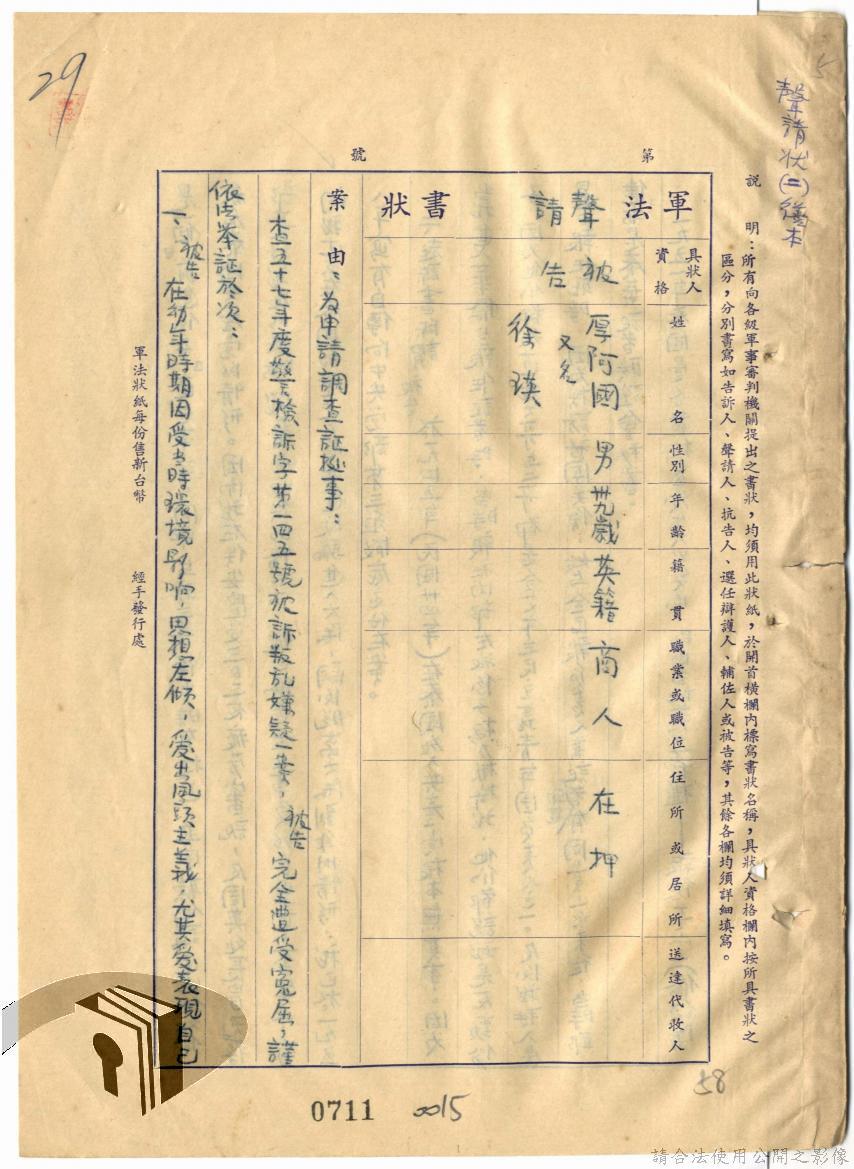 聲請狀(二)繕本
5
說　明：所有向各級軍事審判機關提出之書狀，均須用此狀紙，於開首橫欄內標寫書狀名稱，具狀人資格欄內按所具書狀之
區分，分別書寫如告訴人、聲請人、抗告人、選任辯護人、輔佐人或被告等，其餘各欄均須詳細填寫。
第　號
軍法聲請書狀
具狀人資格
姓名
性別
年齡
籍貫
職業或職位
住所或居所
送達代收人
被告
厚阿國 男 卅九歲 英籍 商人 在押
又名
徐瑛
案由：為申請調查証據事：
查五十七年度警檢訴字第一四五號被訴叛乱嫌疑一案，被告完全遭受寃屈，謹
依法举証於次：
一、被告在幼年時期因受当時環境影响，思想左傾，愛出風頭主義，尤其愛表現自己
軍法狀紙每份售新台幣　經手發行處
29
0711
0015
58
請合法使用公開之影像